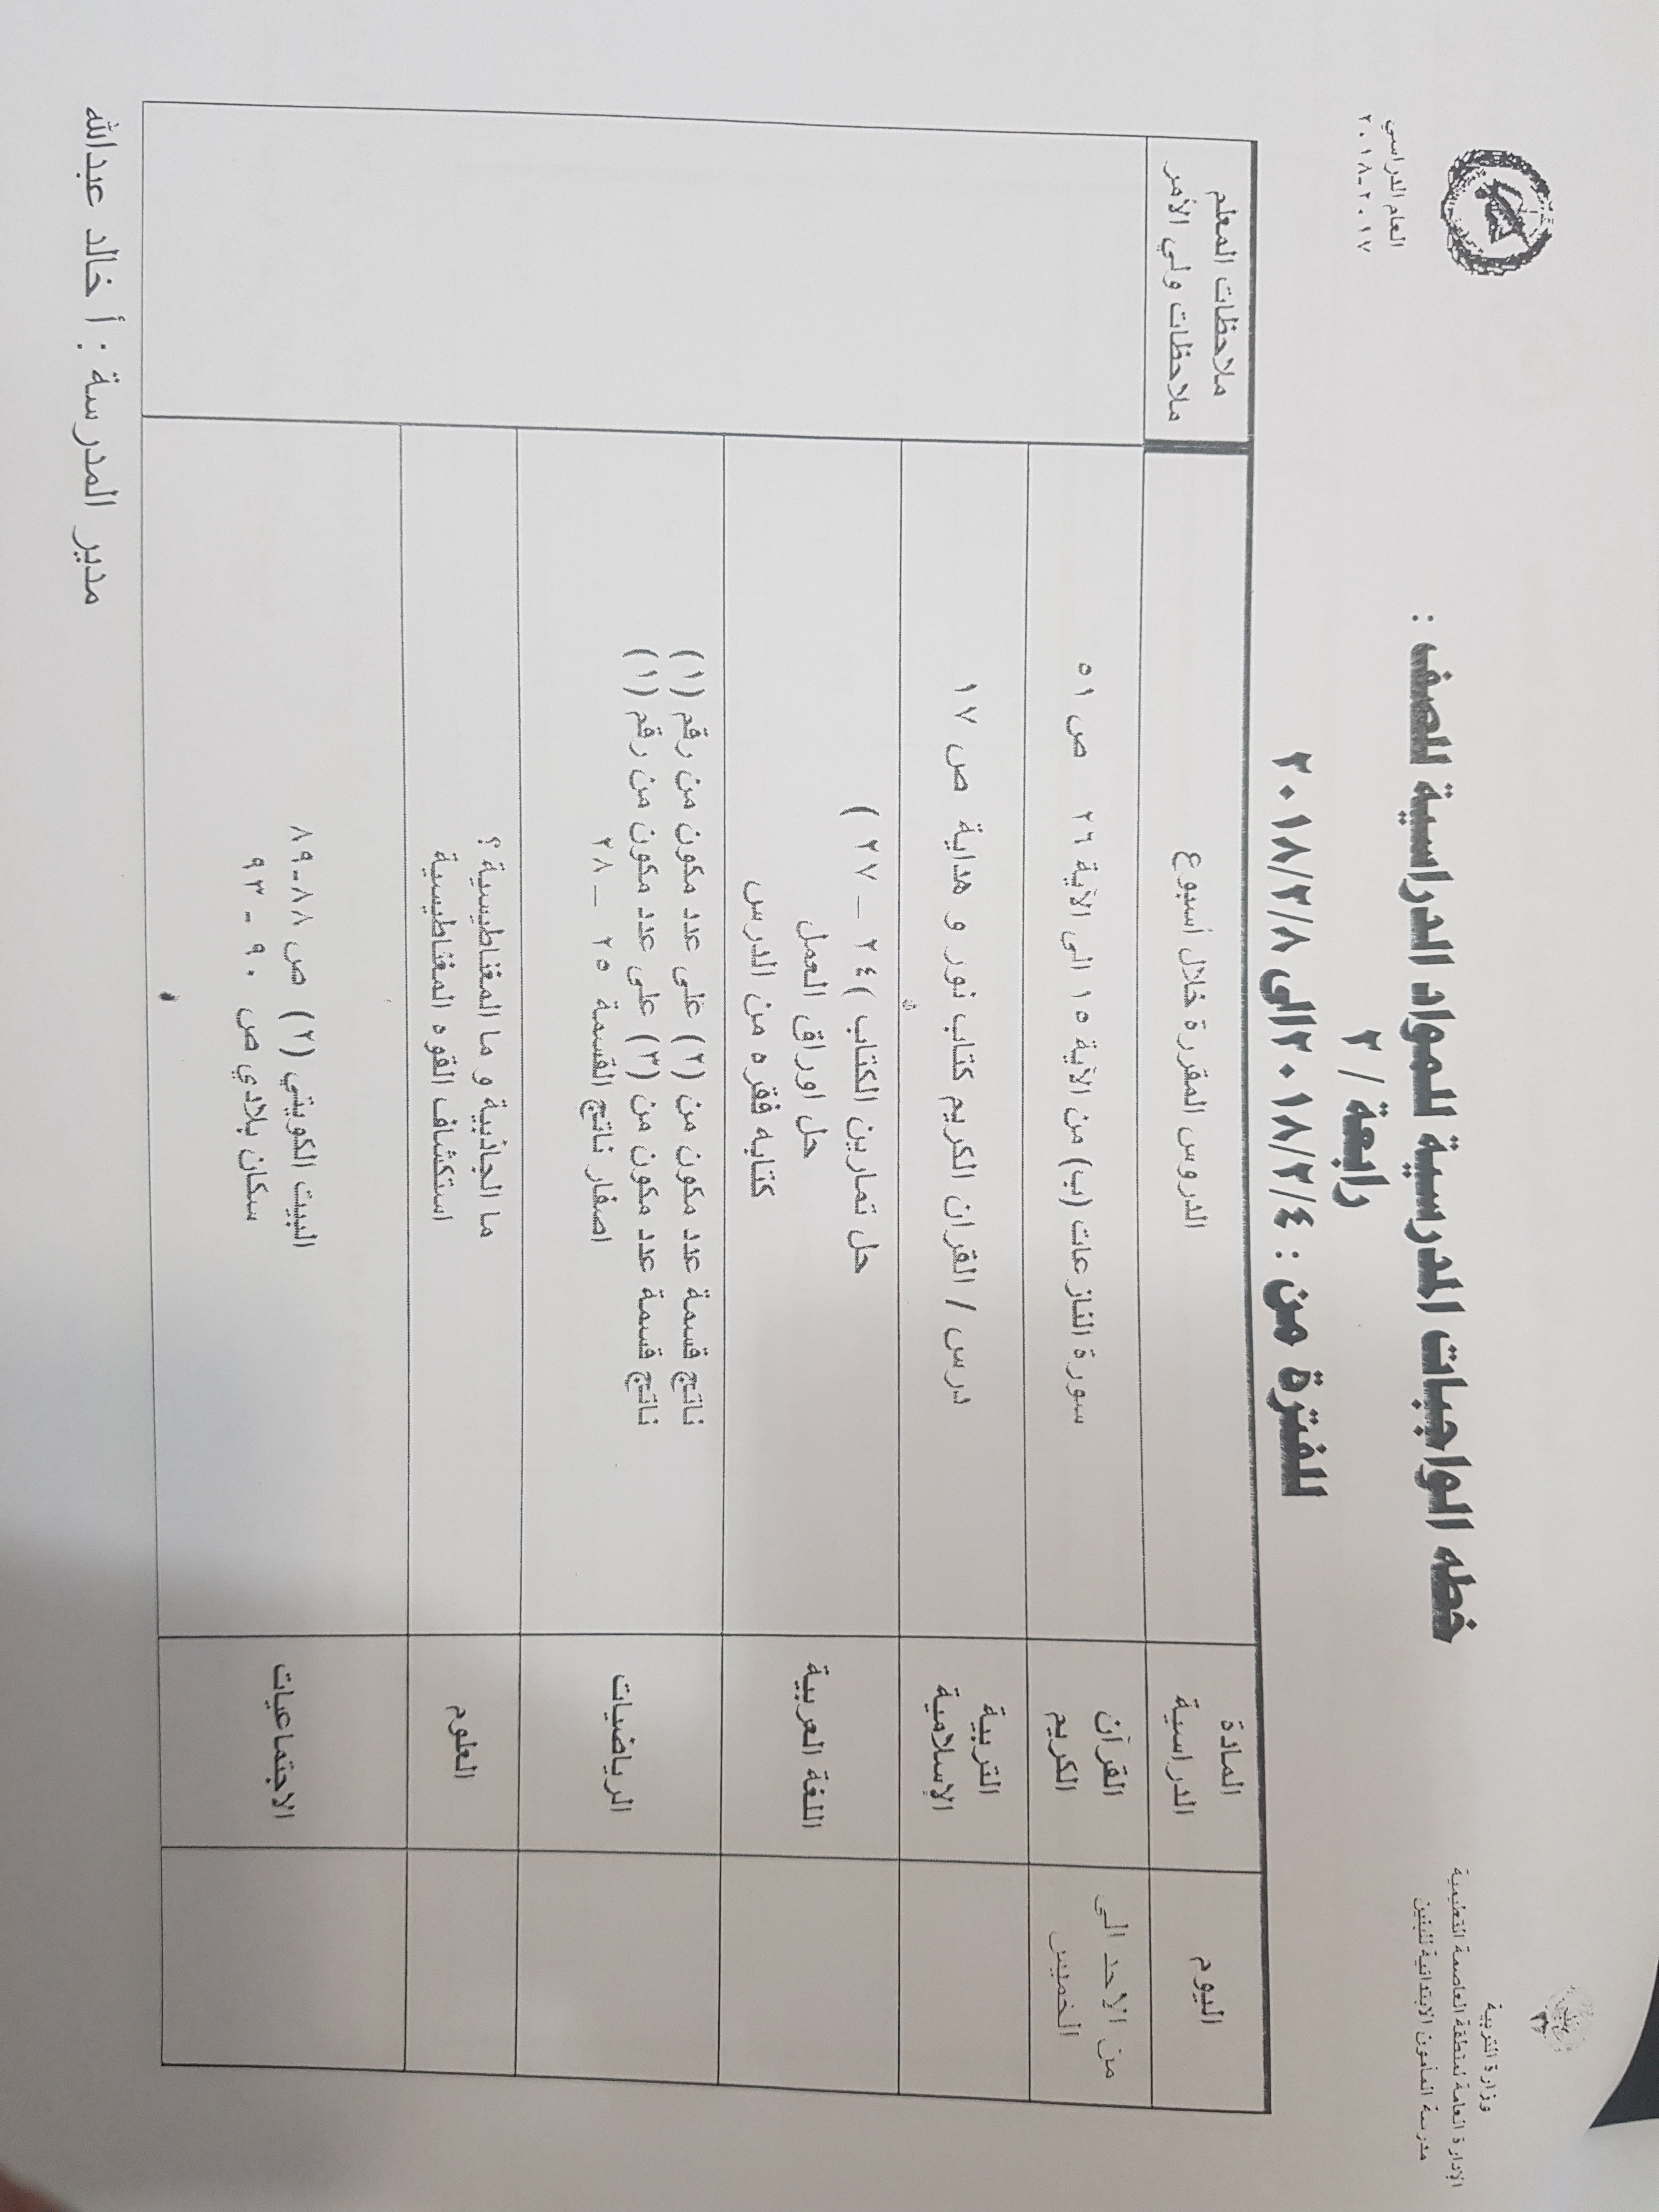 وزارة التربية
الإدارة العامة لمنطقة العاصمة التعليمية
مدرسة المأمون الابتدائية للبنين
العام الدراسي
٢٠١٧-٢٠١٨
خطه الواجبات المدرسية للمواد الدراسية للصف :
رابعة / ٢
للفترة من : ٢٠١٨/٢/٤الى ٢٠١٨/٢/٨
اليوم
المادة
الدراسية
الدروس المقررة خلال أسبوع
ملاحظات المعلم
ملاحظات ولي الأمر
من الاحد الى
الخميس
القرآن
الكريم
سورة النازعات (ب) من الآية ١٥ الى الآية ٢٦ ص ٥١
التربية
الإسلامية
درس / القران الكريم كتاب نور و هداية ص ١٧
اللغة العربية
حل تمارين الكتاب (٢٤ – ٢٧ )
حل اوراق العمل
كتابه فقره من الدرس
الرياضيات
ناتج قسمة عدد مكون من (٢) على عدد مكون من رقم (١)
ناتج قسمة عدد مكون من (٣) على عدد مكون من رقم (١)
اصفار ناتج القسمة ٢٥ – ٢٨
العلوم
ما الجاذبية و ما المغناطيسية ؟
استكشاف القوه المغناطيسية
الاجتماعيات
البيت الكويتي (٢) ص ٨٨-٨٩
سكان بلادي ص ٩٠ - ٩٣
مدير المدرسة : أ خالد عبدالله